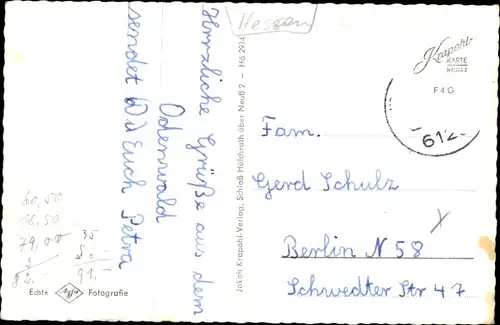 Hessen
Herzliche Grüße aus dem
Odenwald
sendet Euch Petra
Jakob Krapohl-Verlag, Schloß Hülchrath über Neuß 2 — H6 2914
Krapohl-
KARTE
NEUSS 2
F 4 G
612
Fam.
Gerd Schulz
Berlin N 58
Schwedter Str 47
60,50
18,50
79,00
35
91,-
Echte Agfa Fotografie